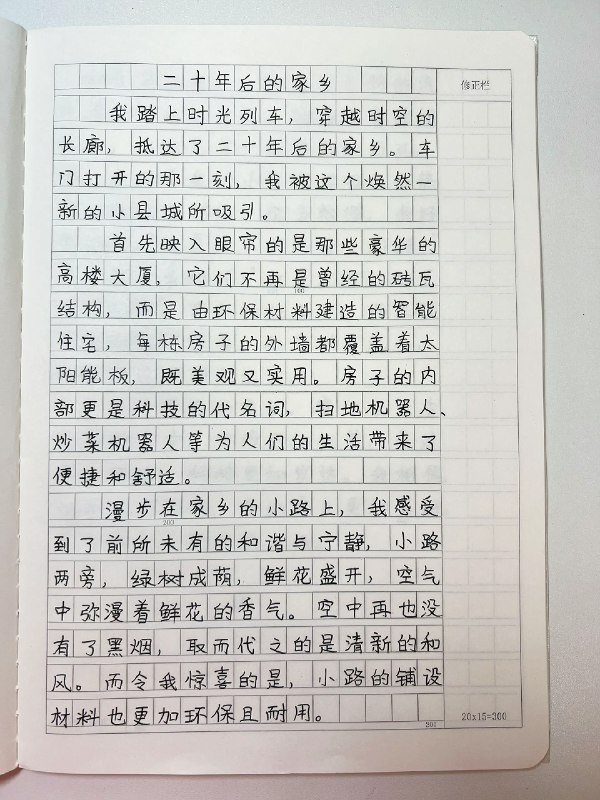 二十年后的家乡
修正栏
我踏上时光列车，穿越时空的
长廊，抵达了二十年后的家乡。车
门打开的那一刻，我被这个焕然一
新的小县城所吸引。
首先映入眼帘的是那些豪华的
高楼大厦，它们不再是曾经的砖瓦
100
结构，而是由环保材料建造的智能
住宅，每栋房子的外墙都覆盖着太
阳能板，既美观又实用。房子的内
部更是科技的代名词，扫地机器人、
炒菜机器人等为人们的生活带来了
便捷和舒适。
漫步在家乡的小路上，我感受
200
到了前所未有的和谐与宁静，小路
两旁，绿树成荫，鲜花盛开，空气
中弥漫着鲜花的香气。空中再也没
有了黑烟，取而代之的是清新的和
风。而令我惊喜的是，小路的铺设
材料也更加环保且耐用。
20x15=300
300